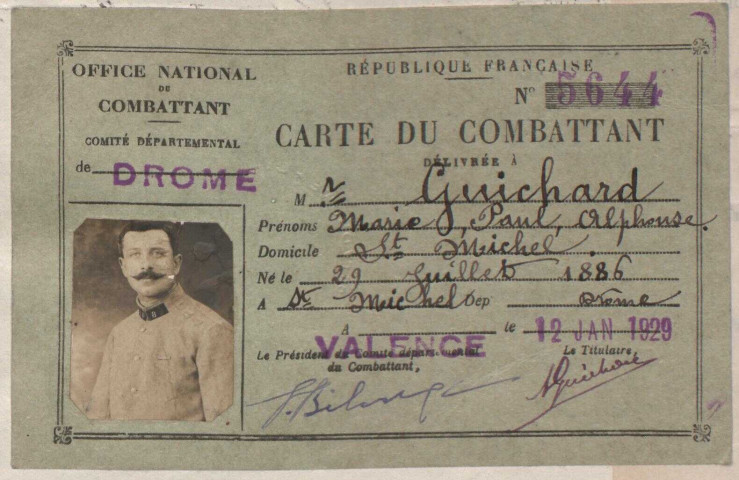 OFFICE NATIONAL
DU
COMBATTANT
COMITÉ DÉPARTEMENTAL
de DROME
RÉPUBLIQUE FRANÇAISE
N° 5644
CARTE DU COMBATTANT
DÉLIVRÉE À
M r Guichard
Prénoms Marie, Paul, Alphonse.
Domicile St Michel.
Né le 29 Juillet 1886
A St Michel Dep Drôme
A VALENCE le 12 JAN 1929
Le Président du Comité départemental
du Combattant,
Le Titulaire,
AGuichard